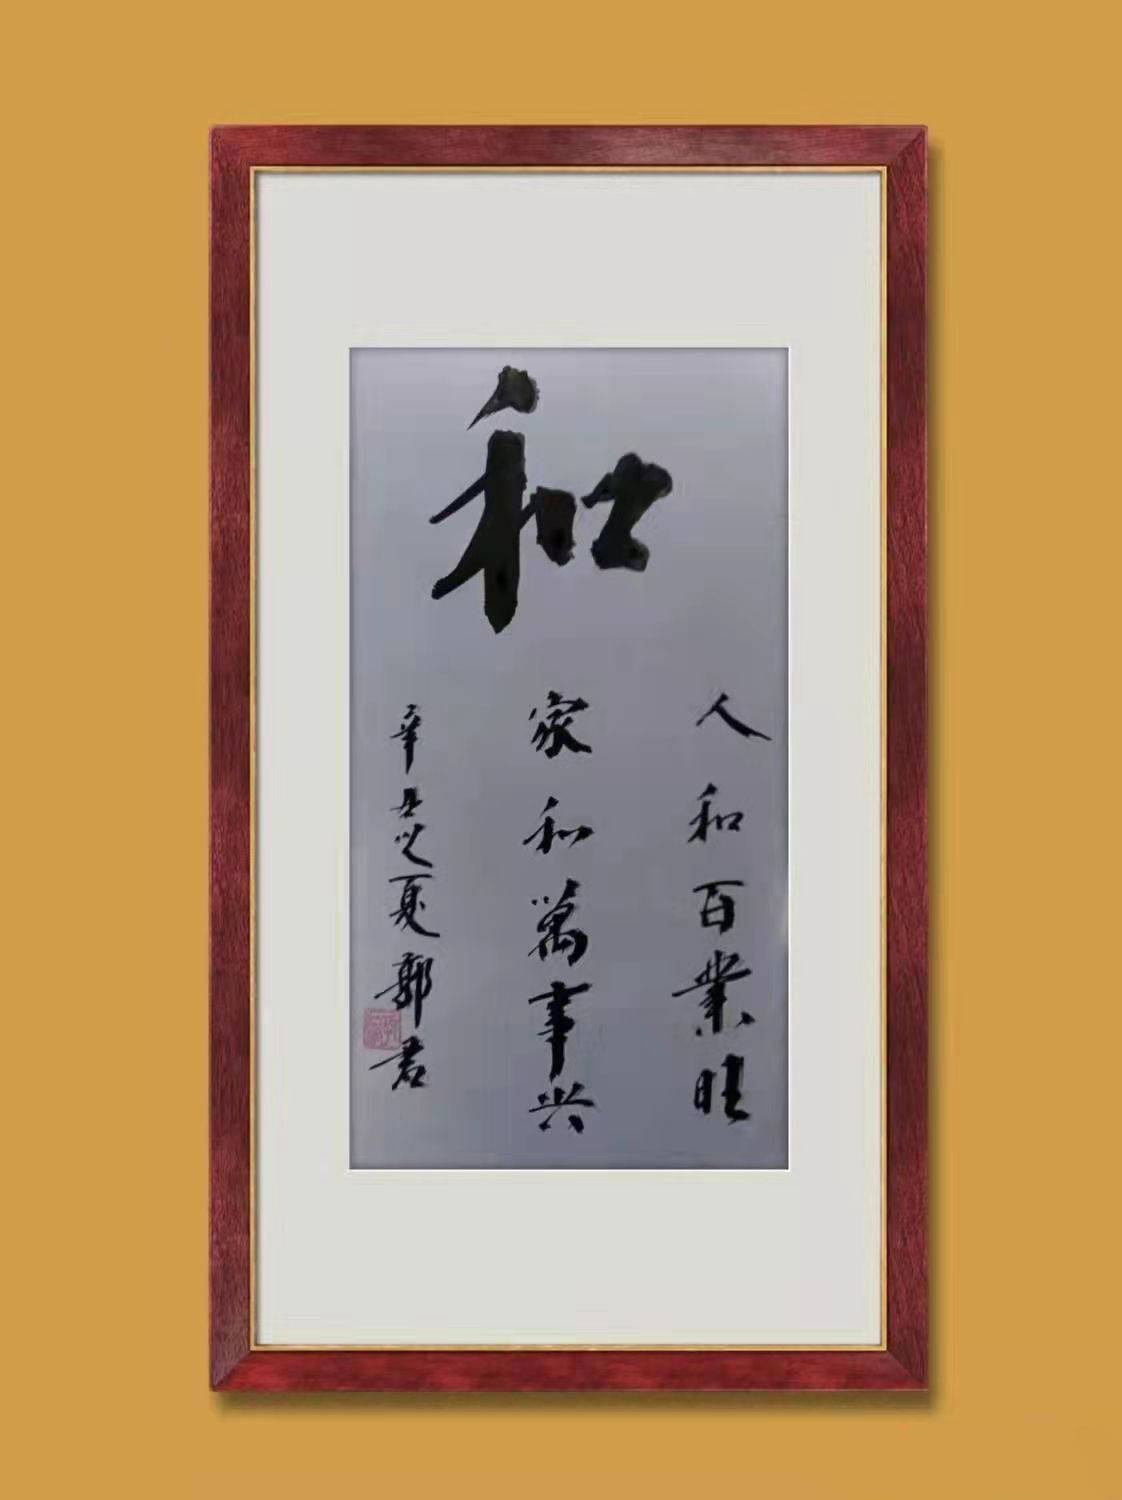 和
人和百業旺
家和萬事兴
辛丑之夏郭君